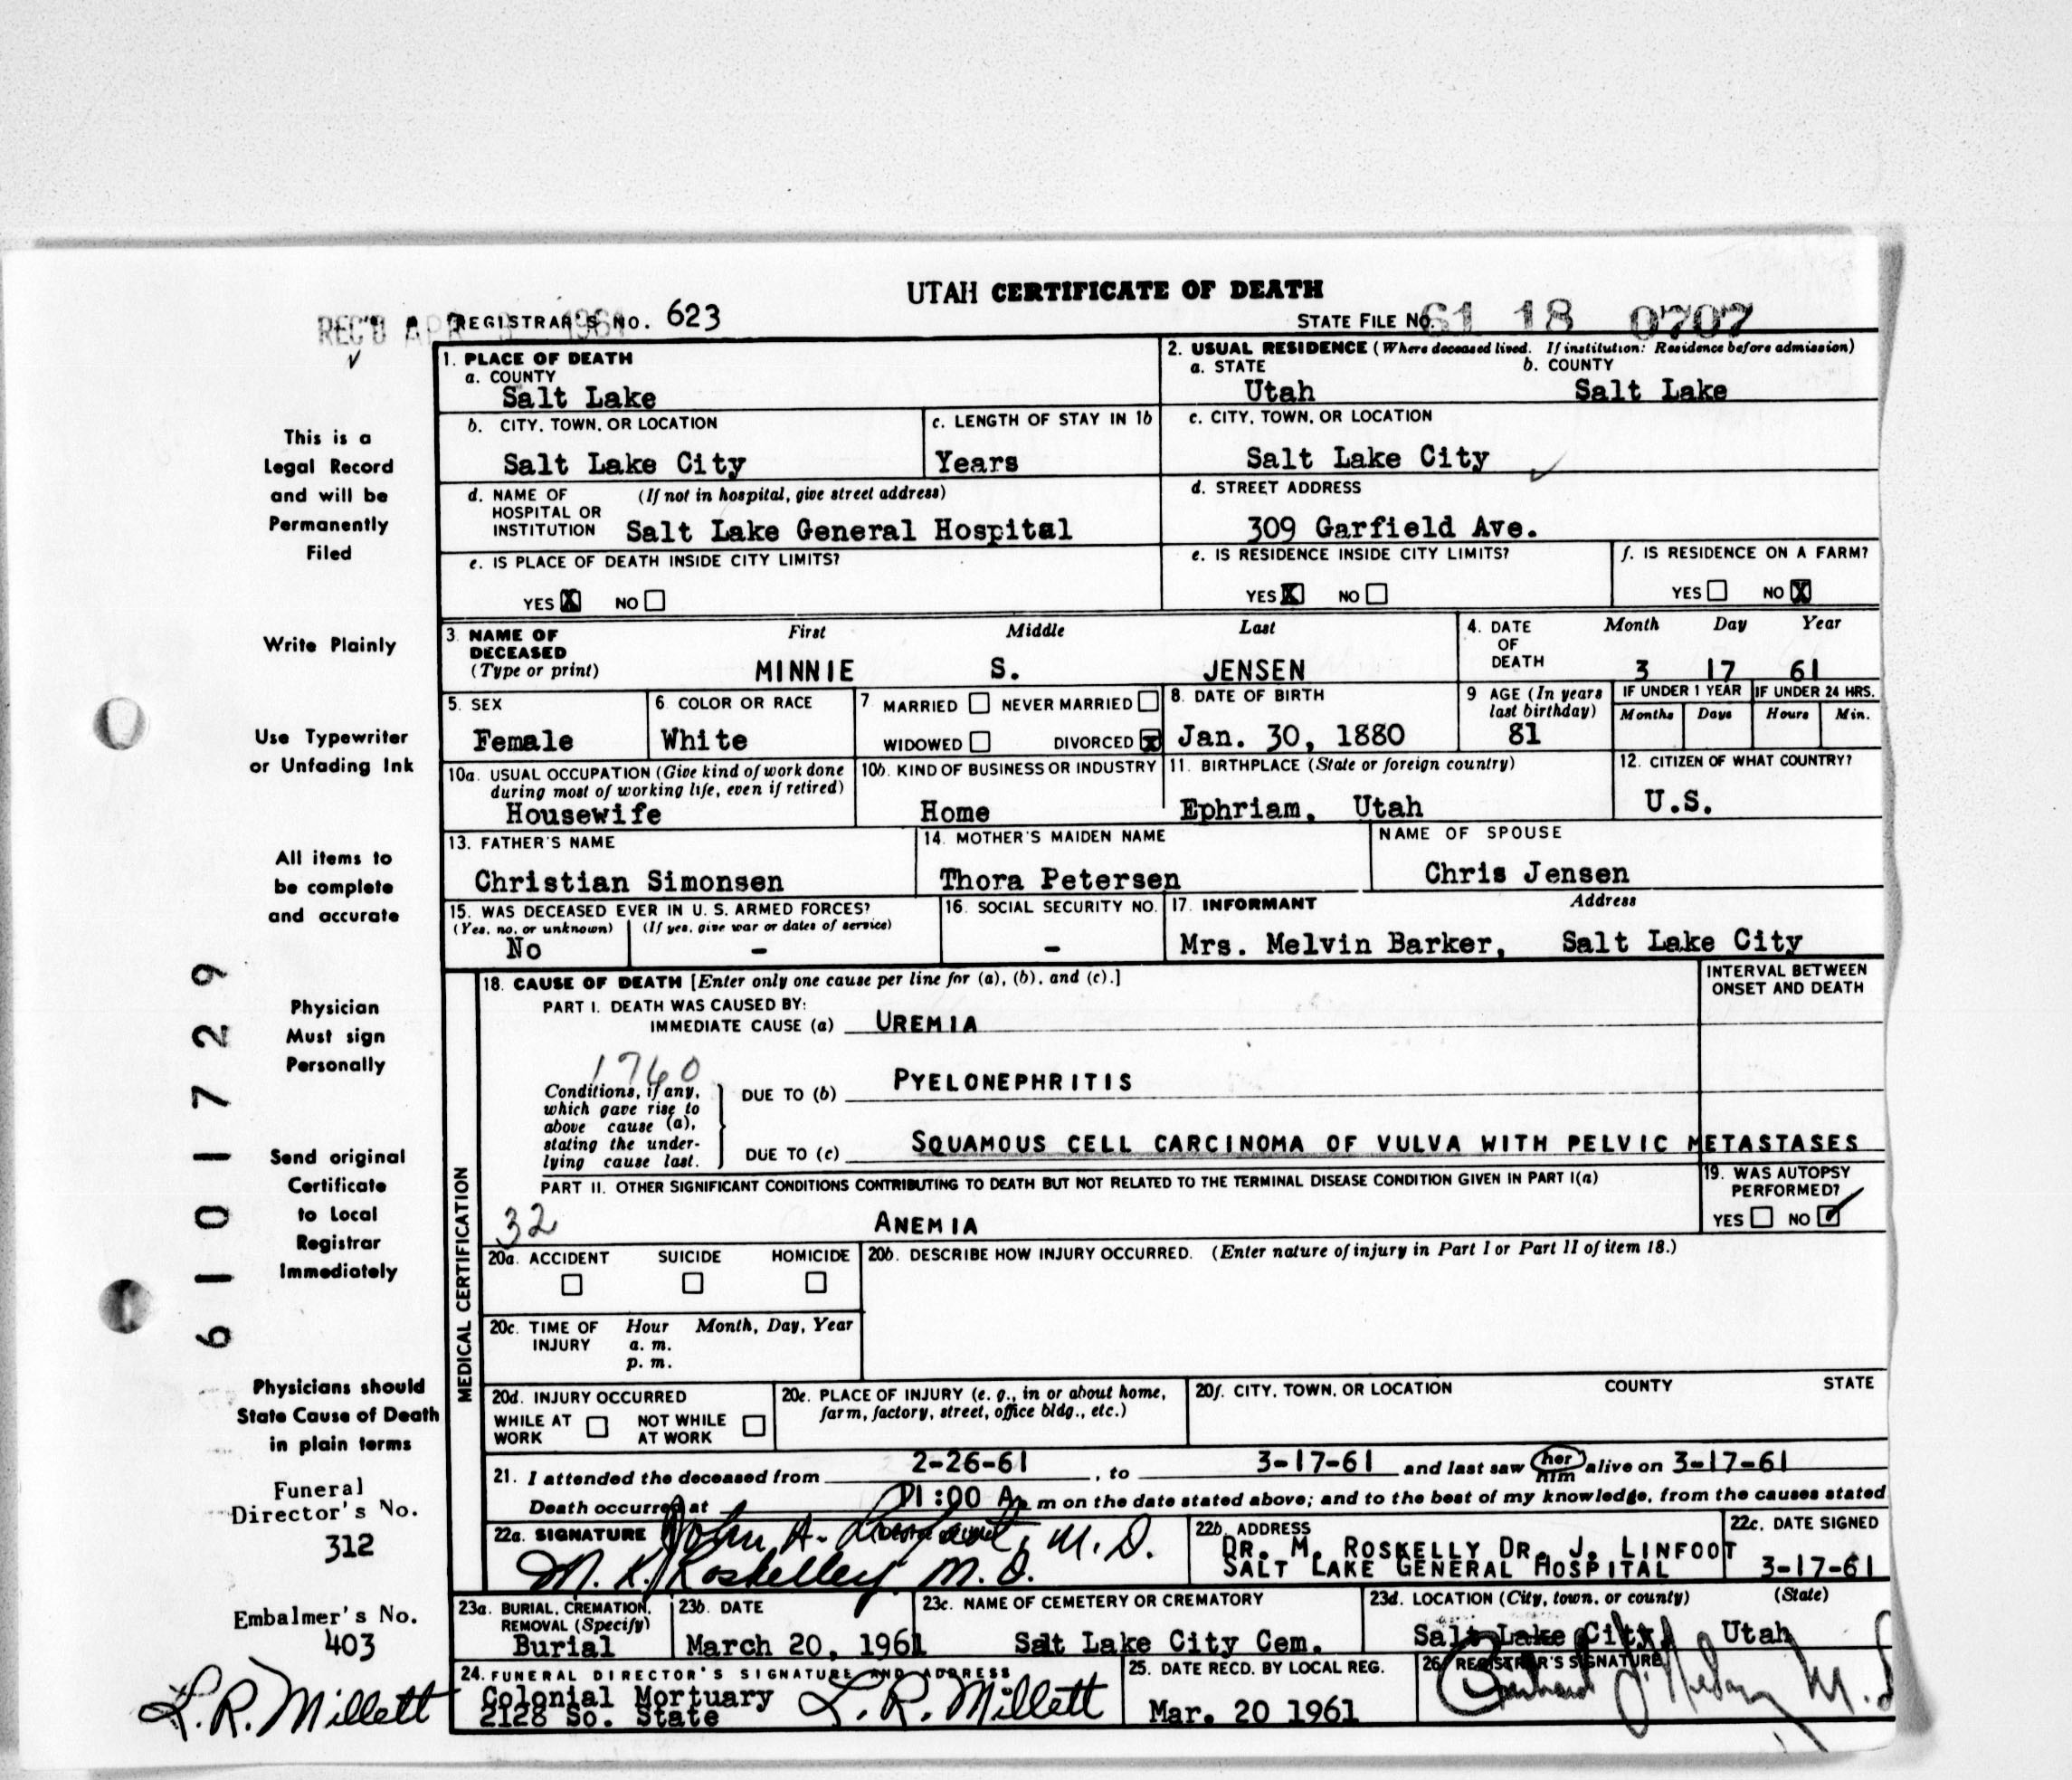 UTAH CERTIFICATE OF DEATH
REC'D APR 1961 REGISTRAR'S NO. 623 STATE FILE NO. 61 18 0707
1. PLACE OF DEATH
a. COUNTY
Salt Lake
2. USUAL RESIDENCE (Where deceased lived. If institution: Residence before admission)
a. STATE b. COUNTY
Utah Salt Lake
b. CITY, TOWN, OR LOCATION
Salt Lake City
c. LENGTH OF STAY IN 1b
Years
c. CITY, TOWN, OR LOCATION
Salt Lake City
d. NAME OF (If not in hospital, give street address)
HOSPITAL OR
INSTITUTION Salt Lake General Hospital
d. STREET ADDRESS
309 Garfield Ave.
e. IS PLACE OF DEATH INSIDE CITY LIMITS?
YES X NO
e. IS RESIDENCE INSIDE CITY LIMITS?
YES X NO
f. IS RESIDENCE ON A FARM?
YES NO X
3. NAME OF DECEASED
(Type or print)
First Middle Last
MINNIE S. JENSEN
4. DATE OF DEATH
Month Day Year
3 17 61
5. SEX
Female
6. COLOR OR RACE
White
7 MARRIED NEVER MARRIED
WIDOWED DIVORCED X
8. DATE OF BIRTH
Jan. 30, 1880
9 AGE (In years
last birthday)
81
IF UNDER 1 YEAR IF UNDER 24 HRS.
Months Days Hours Min.
10a. USUAL OCCUPATION (Give kind of work done
during most of working life, even if retired)
Housewife
10b. KIND OF BUSINESS OR INDUSTRY
Home
11. BIRTHPLACE (State or foreign country)
Ephriam, Utah
12. CITIZEN OF WHAT COUNTRY?
U.S.
13. FATHER'S NAME
Christian Simonsen
14. MOTHER'S MAIDEN NAME
Thora Petersen
NAME OF SPOUSE
Chris Jensen
15. WAS DECEASED EVER IN U. S. ARMED FORCES?
(Yes, no, or unknown) (If yes, give war or dates of service)
No -
16. SOCIAL SECURITY NO.
-
17. INFORMANT Address
Mrs. Melvin Barker, Salt Lake City
MEDICAL CERTIFICATION
18. CAUSE OF DEATH [Enter only one cause per line for (a), (b), and (c).]
INTERVAL BETWEEN
ONSET AND DEATH
PART I. DEATH WAS CAUSED BY:
IMMEDIATE CAUSE (a) UREMIA
1760
Conditions, if any,
which gave rise to
above cause (a),
stating the under-
lying cause last.
DUE TO (b) PYELONEPHRITIS
DUE TO (c) SQUAMOUS CELL CARCINOMA OF VULVA WITH PELVIC METASTASES
PART II. OTHER SIGNIFICANT CONDITIONS CONTRIBUTING TO DEATH BUT NOT RELATED TO THE TERMINAL DISEASE CONDITION GIVEN IN PART I(a)
32 ANEMIA
19. WAS AUTOPSY
PERFORMED?
YES NO
20a. ACCIDENT SUICIDE HOMICIDE
20b. DESCRIBE HOW INJURY OCCURRED. (Enter nature of injury in Part I or Part II of item 18.)
20c. TIME OF Hour Month, Day, Year
INJURY a. m.
p. m.
20d. INJURY OCCURRED
WHILE AT NOT WHILE
WORK AT WORK
20e. PLACE OF INJURY (e. g., in or about home,
farm, factory, street, office bldg., etc.)
20f. CITY, TOWN, OR LOCATION COUNTY STATE
21. I attended the deceased from 2-26-61, to 3-17-61 and last saw her him alive on 3-17-61
Death occurred at 1:00 A. m on the date stated above; and to the best of my knowledge, from the causes stated
22a. SIGNATURE John A. Linfoot, M.D.
M. K. Roskelley M. D.
22b. ADDRESS
DR. M. ROSKELLY DR. J. LINFOOT
SALT LAKE GENERAL HOSPITAL
22c. DATE SIGNED
3-17-61
23a. BURIAL, CREMATION,
REMOVAL (Specify)
Burial
23b. DATE
March 20, 1961
23c. NAME OF CEMETERY OR CREMATORY
Salt Lake City Cem.
23d. LOCATION (City, town, or county) (State)
Salt Lake City, Utah
24. FUNERAL DIRECTOR'S SIGNATURE AND ADDRESS
Colonial Mortuary
2128 So. State
L. R. Millett
25. DATE RECD. BY LOCAL REG.
Mar. 20 1961
26. REGISTRAR'S SIGNATURE
This is a
Legal Record
and will be
Permanently
Filed
Write Plainly
Use Typewriter
or Unfading Ink
All items to
be complete
and accurate
Physician
Must sign
Personally
Send original
Certificate
to Local
Registrar
Immediately
Physicians should
State Cause of Death
in plain terms
Funeral
Director's No.
312
Embalmer's No.
403
L. R. Millett
6101729